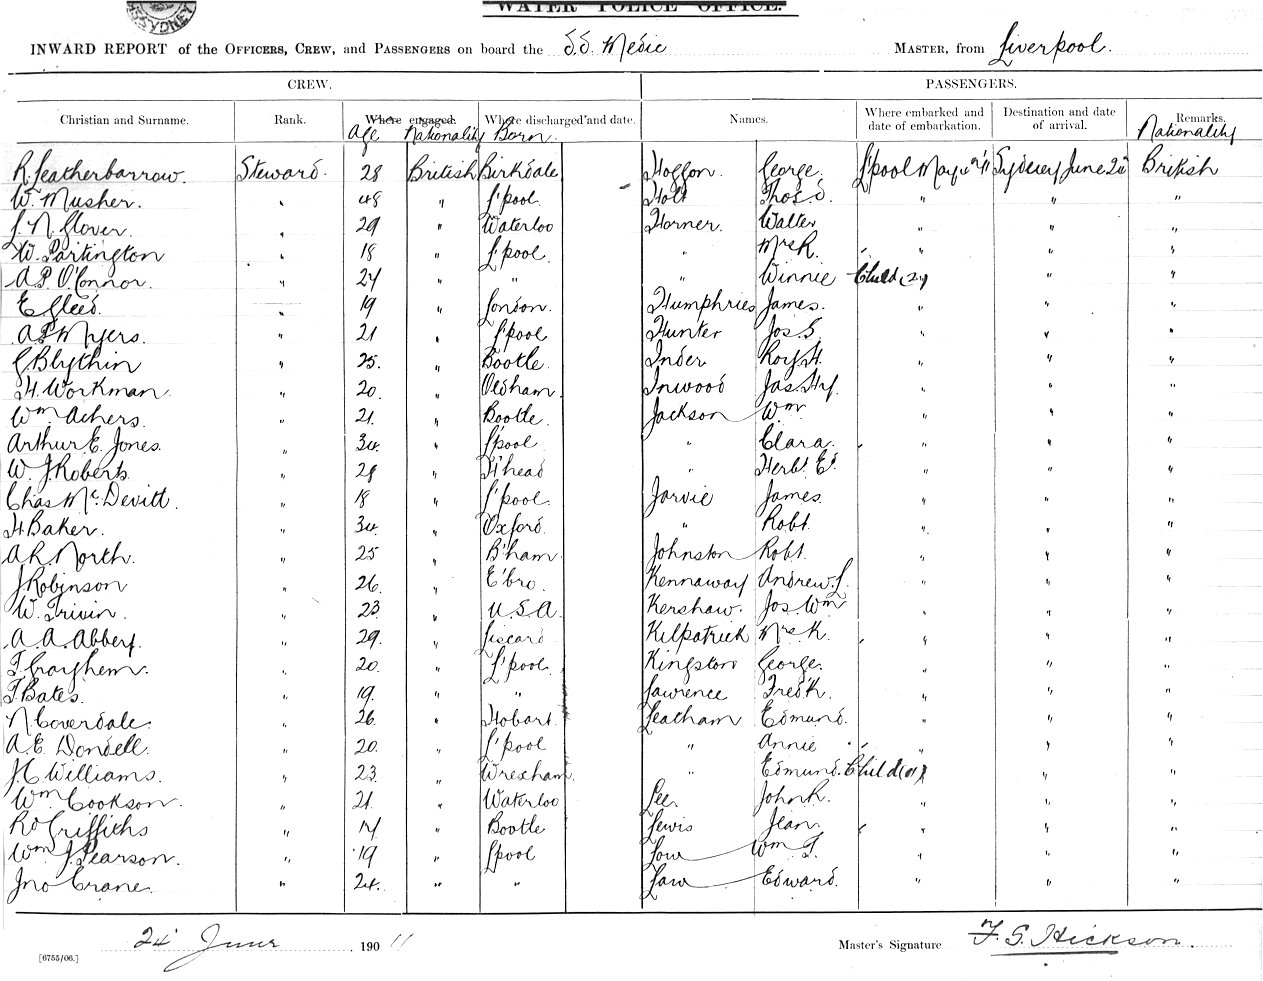 SYDNEY
WATER POLICE OFFICE.
INWARD REPORT of the OFFICERS, CREW, and PASSENGERS on board the S.S. Medic MASTER, from Liverpool.
CREW. PASSENGERS.
Christian and Surname. Rank. Where engaged. Where discharged and date. Names. Where embarked and date of embarkation. Destination and date of arrival. Remarks.
Age Nationality Born Nationality
R. Leatherbarrow. Steward. 28 British Birkdale Hoggon. George. L'pool May Sydney June British
W. Musher. " 48 " L'pool. Holt Thos. S. " " "
J. N. Glover. " 29 " Waterloo Horner. Walter " " "
W. Partington " 18 " L'pool. " Mrs R. " " "
A. P. O'Connor. " 24 " " " Winnie Child (2) " "
E. Gleed. " 19 " London. Humphries James. " " "
A. P. Myers. " 21 " L'pool Hunter Jos. S. " " "
Blythin " 25. " Bootle. Inder Roy H. " " "
H. Workman. " 20. " Oldham. Inwood Jas. Hy. " " "
Wm Achers. " 21. " Bootle. Jackson Wm. " " "
Arthur E. Jones. " 34. " L'pool " Clara. " " "
W. J. Roberts. " 28 " H'head " Herbt. Ed. " " "
Chas. McDevitt. " 18 " L'pool. Jarvie James. " " "
H. Baker. " 34. " Oxford. " Robt. " " "
A. R. North. " 25 " B'ham. Johnston Robt. " " "
J. Robinson " 26. " E'bro. Kennaway Andrew L. " " "
W. " 23. " U.S.A. Kershaw. Jos. Wm " " "
A. A. Abbey. " 29. " Liscard Kilpatrick Mrs K. " " "
" 20. " L'pool. Kingston George. " " "
T. Bates. " 19. " " Lawrence Fredk. " " "
N. Coverdale. " 26. " Hobart. Leatham Edmund. " " "
A. E. " 20. " L'pool " Annie " " "
J. C. Williams. " 23. " Wrexham. " Edmund. Child " "
Wm. Cookson. " 21. " Waterloo Lee. John R. " " "
Rd Griffiths " 17 " Bootle Lewis Jean. " " "
Wm. J. Pearson. " 19 " L'pool Low Wm T. " " "
Jno Crane. " 24. " " Law Edward. " " "
24 June 190 11 Master's Signature F. S. Hickson.
[6755/06.]